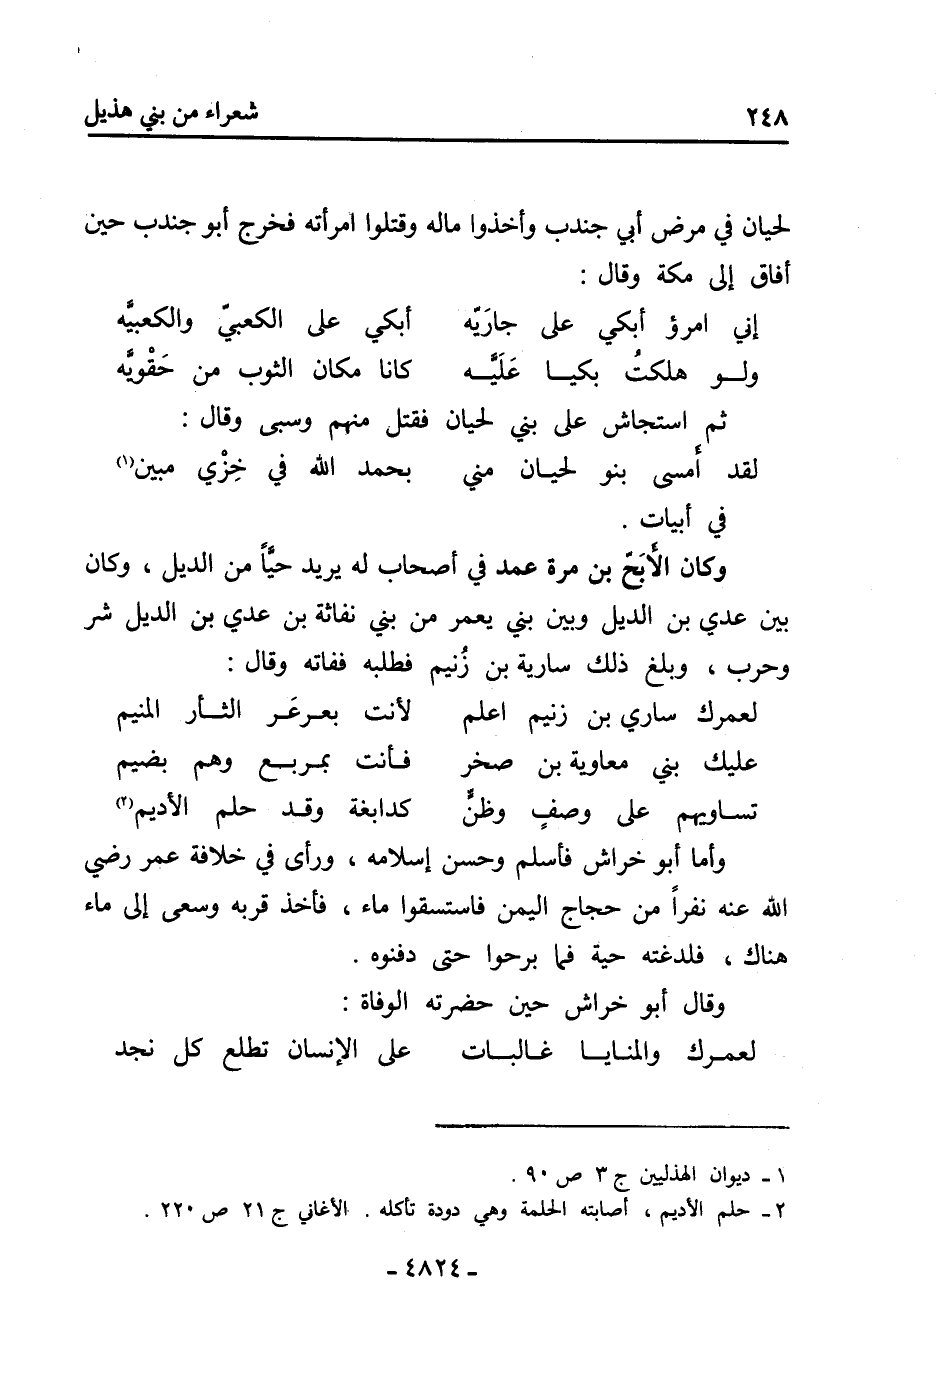 ٢٤٨ شعراء من بني هذيل
لحيان في مرض أبي جندب وأخذوا ماله وقتلوا امرأته فخرج أبو جندب حين
أفاق إلى مكة وقال :
إني امرؤ أبكي على جارَيّه أبكي على الكعبيّ والكعبيَّه
ولو هلكتُ بكيا عَلَيَّه كانا مكان الثوب من حَقْويَّه
ثم استجاش على بني لحيان فقتل منهم وسبى وقال :
لقد أَمسى بنو لحيان مني بحمد الله في خِزْي مبين(١)
في أبيات .
وكان الأَبَحّ بن مرة عمد في أصحاب له يريد حيَّاً من الديل ، وكان
بين عدي بن الديل وبين بني يعمر من بني نفاثة بن عدي بن الديل شر
وحرب ، وبلغ ذلك سارية بن زُنيم فطلبه ففاته وقال :
لعمرك ساري بن زنيم اعلم لأنت بعرعَر الثأر المنيم
عليك بني معاوية بن صخر فأنت بمربع وهم بضيم
تساويهم على وصفٍ وظنٍّ كدابغة وقد حلم الأديم(٢)
وأما أبو خراش فأسلم وحسن إسلامه ، ورأى في خلافة عمر رضي
الله عنه نفراً من حجاج اليمن فاستسقوا ماء ، فأخذ قربه وسعى إلى ماء
هناك ، فلدغته حية فما برحوا حتى دفنوه .
وقال أبو خراش حين حضرته الوفاة :
لعمرك والمنايا غالبات على الإنسان تطلع كل نجد
١ ـ ديوان الهذليين ج ٣ ص ٩٠ .
٢ ـ حلم الأديم ، أصابته الحلمة وهي دودة تأكله . الأغاني ج ٢١ ص ٢٢٠ .
ـ ٤٨٢٤ ـ